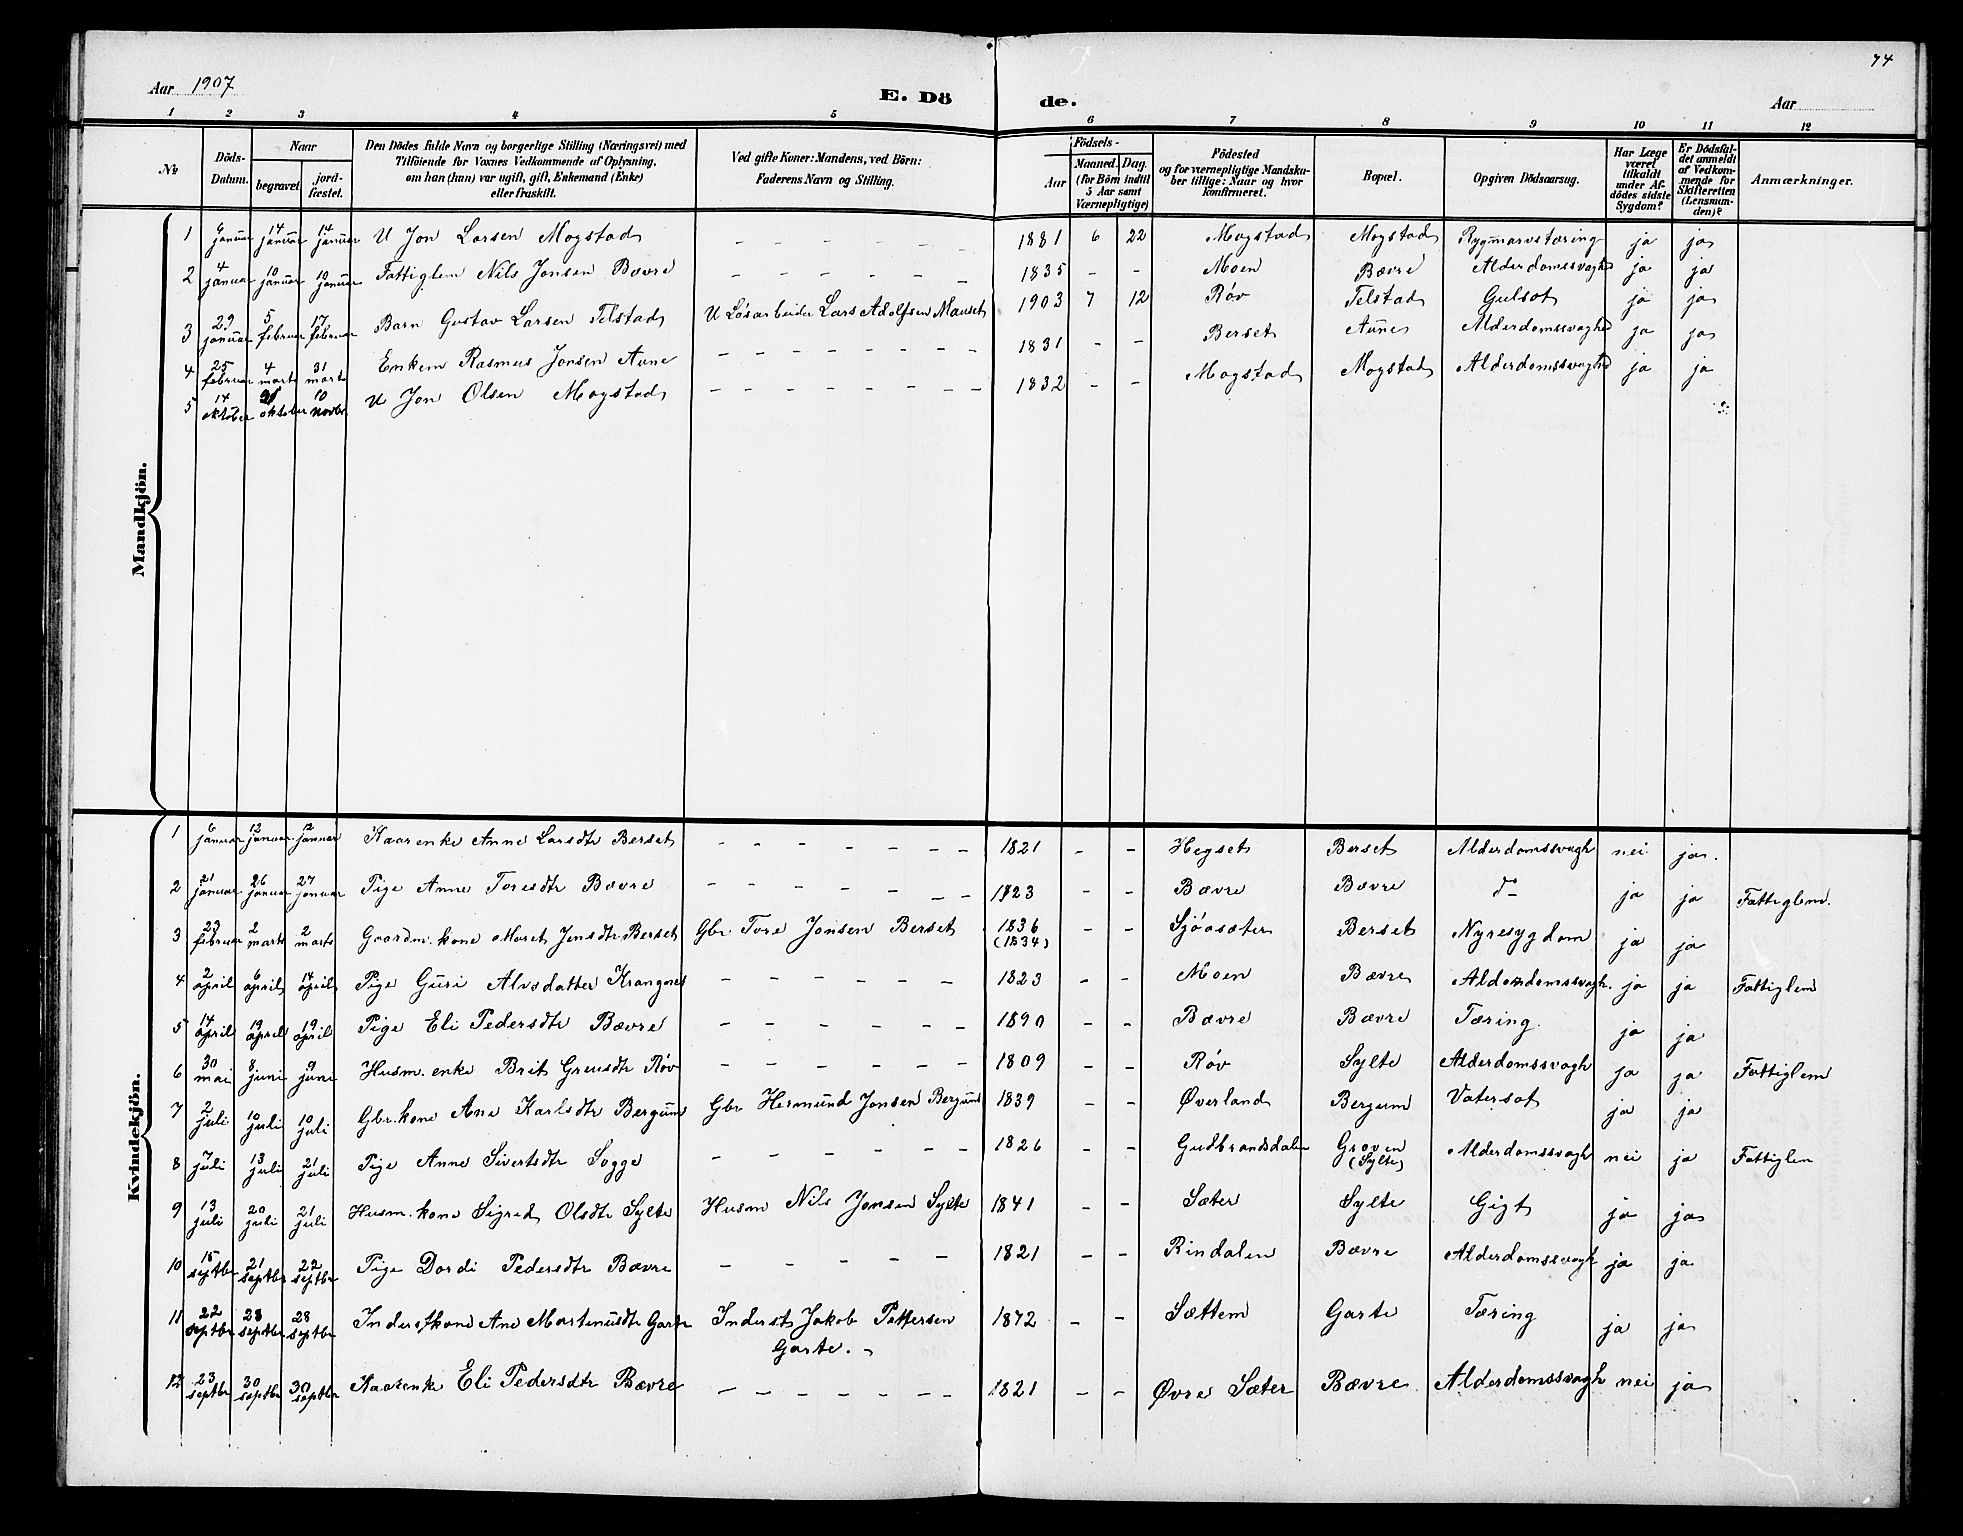 74
Aar 1907
E. Dö
de.
Aar
1 2 3 4 5 6 7 8 9 10 11 12
No
Döds-
Datum.
Naar
begravet
jord-
fæstet.
Den Dödes fulde Navn og borgerlige Stilling (Næringsvei) med
Tilföiende for Voxnes Vedkommende af Oplysning,
om han (hun) var ugift, gift, Enkemand (Enke)
eller fraskilt.
Ved gifte Koner: Mandens, ved Börn:
Faderens Navn og Stilling.
Födsels-
Aar
Maaned. Dag.
(for Börn indtil
5 Aar samt
Værnepligtige)
Födested
og for værnepligtige Mandsku-
ber tillige: Naar og hvor
konfirmeret.
Bopæl.
Opgiven Dödsaarsag.
Har Læge
været
tilkaldt
under Af-
dödes sidste
Sygdom?
Er Dödsfal-
det anmeldt
af Vedkom-
mende for
Skifteretten
(Lensman-
den)?
Anmærkninger.
Mandkjön.
1 6 januar 14 januar 14 januar U Jon Larsen Mogstad – – – – – – 1881 6 22 Mogstad Mogstad Rygmarvstæring ja ja
2 4 januar 10 januar 10 januar Fattiglem Nils Jonsen Bævre – – – – – – 1835 – – Moen Bævre Alderdomssvaghed ja ja
3 29 januar 5 februar 17 februar Barn Gustav Larsen Telstad U Løsarbeider Lars Adolfsen Mauset 1903 7 12 Røv Telstad Gulsot ja ja
4 25 februar 4 marts 31 marts Enkem Rasmus Jonsen Aune – – – – – – – 1831 – – Berset Aune Alderdomssvaghed ja ja
5 14 oktober 21 oktober 10 novbr U Jon Olsen Mogstad – – – – – – – 1832 – – Mogstad Mogstad Alderdomssvaghed ja ja
Kvindekjön.
1 6 januar 12 januar 12 januar Kaarenke Anne Larsdtr Berset – – – – – – – 1821 – – Hegset Berset Alderdomssvagh nei ja.
2 21 januar 26 januar 27 januar Pige Anne Toresdtr Bævre – – – – – – – 1823 – – Bævre Bævre do ja ja Fattiglem.
3 23 februar 2 marts 2 marts Gaardm. kone Maret Jonsdtr Berset Gbr Tore Jonsen Berset 1836 – – Sjøasæter Berset Nyresygdom ja ja
(1834)
4 2 april 6 april 14 april Pige Guri Alvsdatter Krangnes – – – – – – 1823 – – Moen Bævre Alderdomssvagh. ja ja Fattiglem
5 14 april 19 april 19 april Pige Eli Pedersdtr Bævre – – – – – – 1890 – – Bævre Bævre Tæring. ja ja
6 30 mai 8 juni 9 juni Husm. enke Brit Greusdtr Røv – – – – – – 1809 – – Røv Sylte Alderdomssvagh ja ja Fattiglem
7 2 juli 10 juli 10 juli Gbr. kone Ane Karlsdtr Bergum Gbr Hermund Jonsen Bergum 1839 – – Øverland Bergum Vatersot ja ja
8 7 juli 13 juli 21 juli Pige Anne Sivertsdtr Sogge – – – – – – – 1826 – – Gudbrandsdalen Groven Alderdomssvagh nei ja Fattiglem
(Sylte)
9 13 juli 20 juli 21 juli Husm. kone Sigrid Olsdtr Sylte Husm Nils Jonsen Sylte 1841 – – Sæter Sylte Gigt ja ja
10 15 septbr 21 septbr 22 septbr Pige Dordi Pedersdtr Bævre – – – – – 1821 – – Rindalen Bævre Alderdomssvagh ja ja
11 22 septbr 28 septbr 28 septbr Inderstkone Ane Martenusdtr Garte Inderst Jakob Pettersen 1872 – – Sættem Garte Tæring ja ja
Garte.
12 23 septbr 30 septbr 30 septbr Kaarenke Eli Pedersdtr Bævre – – – – – – – 1821 – – Øvre Sæter Bævre Alderdomssvagh nei ja